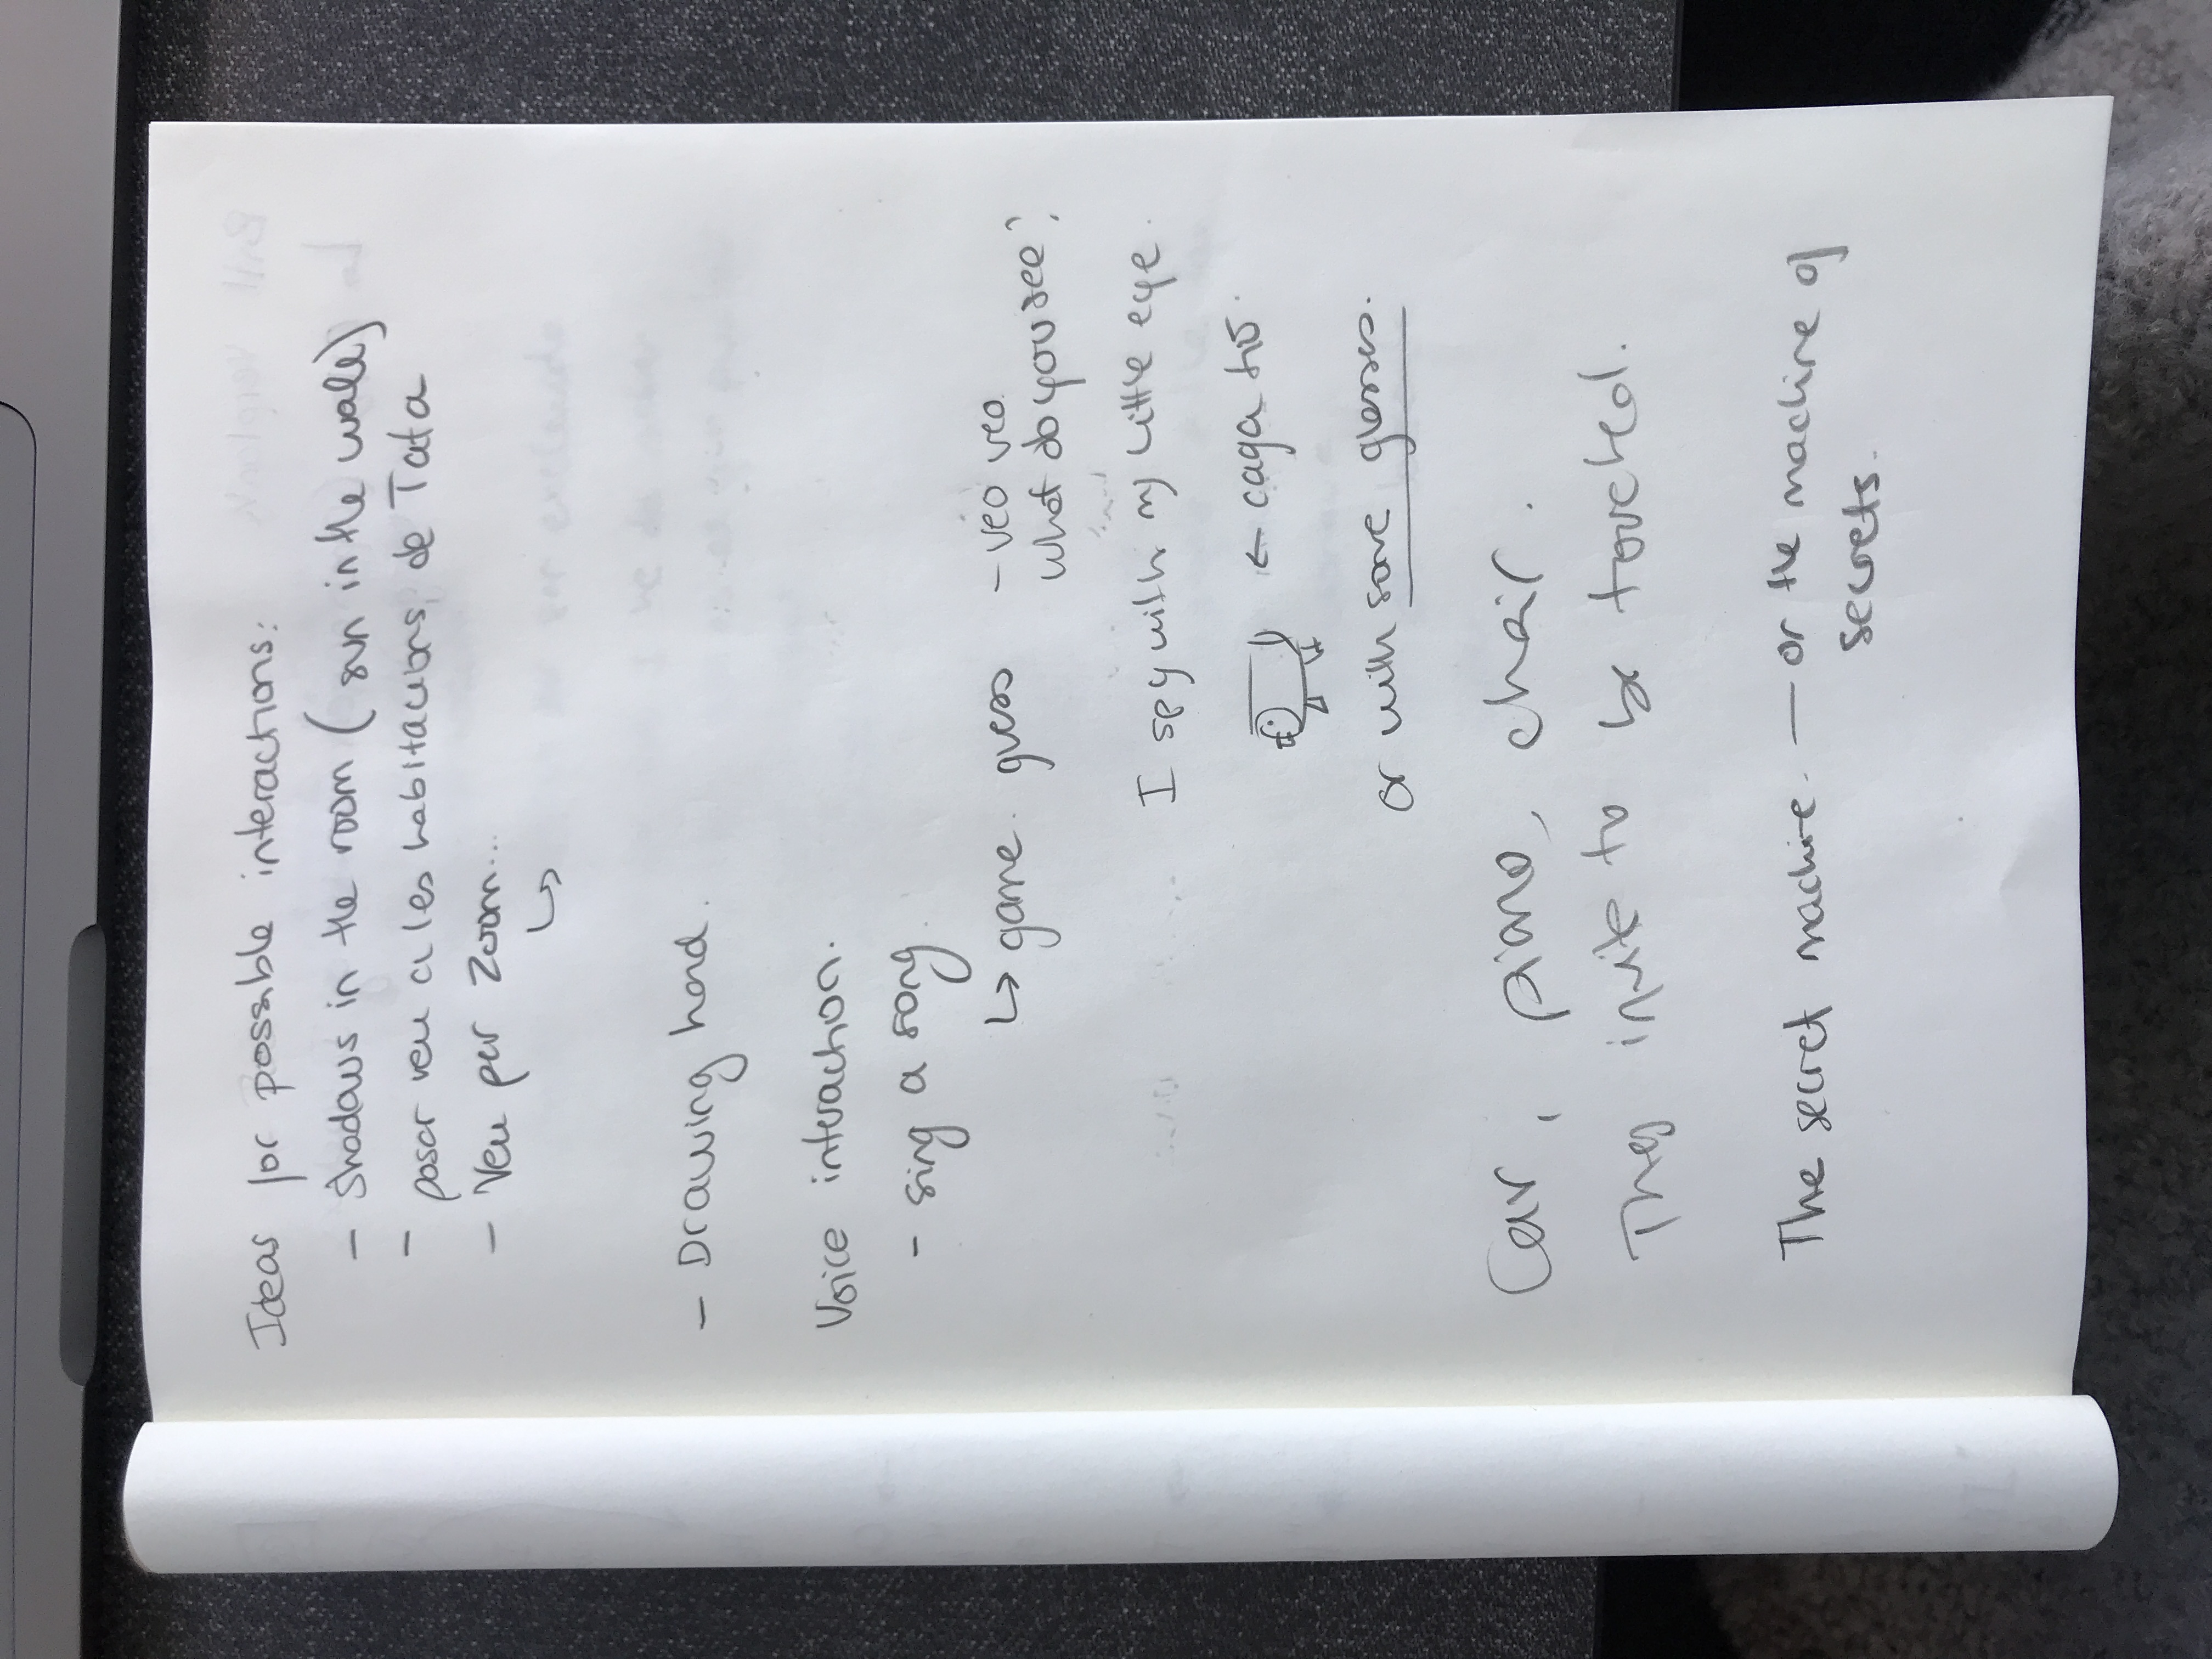 Ideas for possible interactions:
- Shadows in the room (sun in the wall)
- posar veu a les habitacions, de Tata
- Veu per Zoom...
↳
- Drawing hand.
Voice interaction.
- sing a song.
↳ game. guess - veo veo.
what do you see?
I spy with my little eye.
← caga tió.
or with some glasses.
Car, piano, chair.
They invite to be touched.
The secret machine. — or the machine of
secrets.